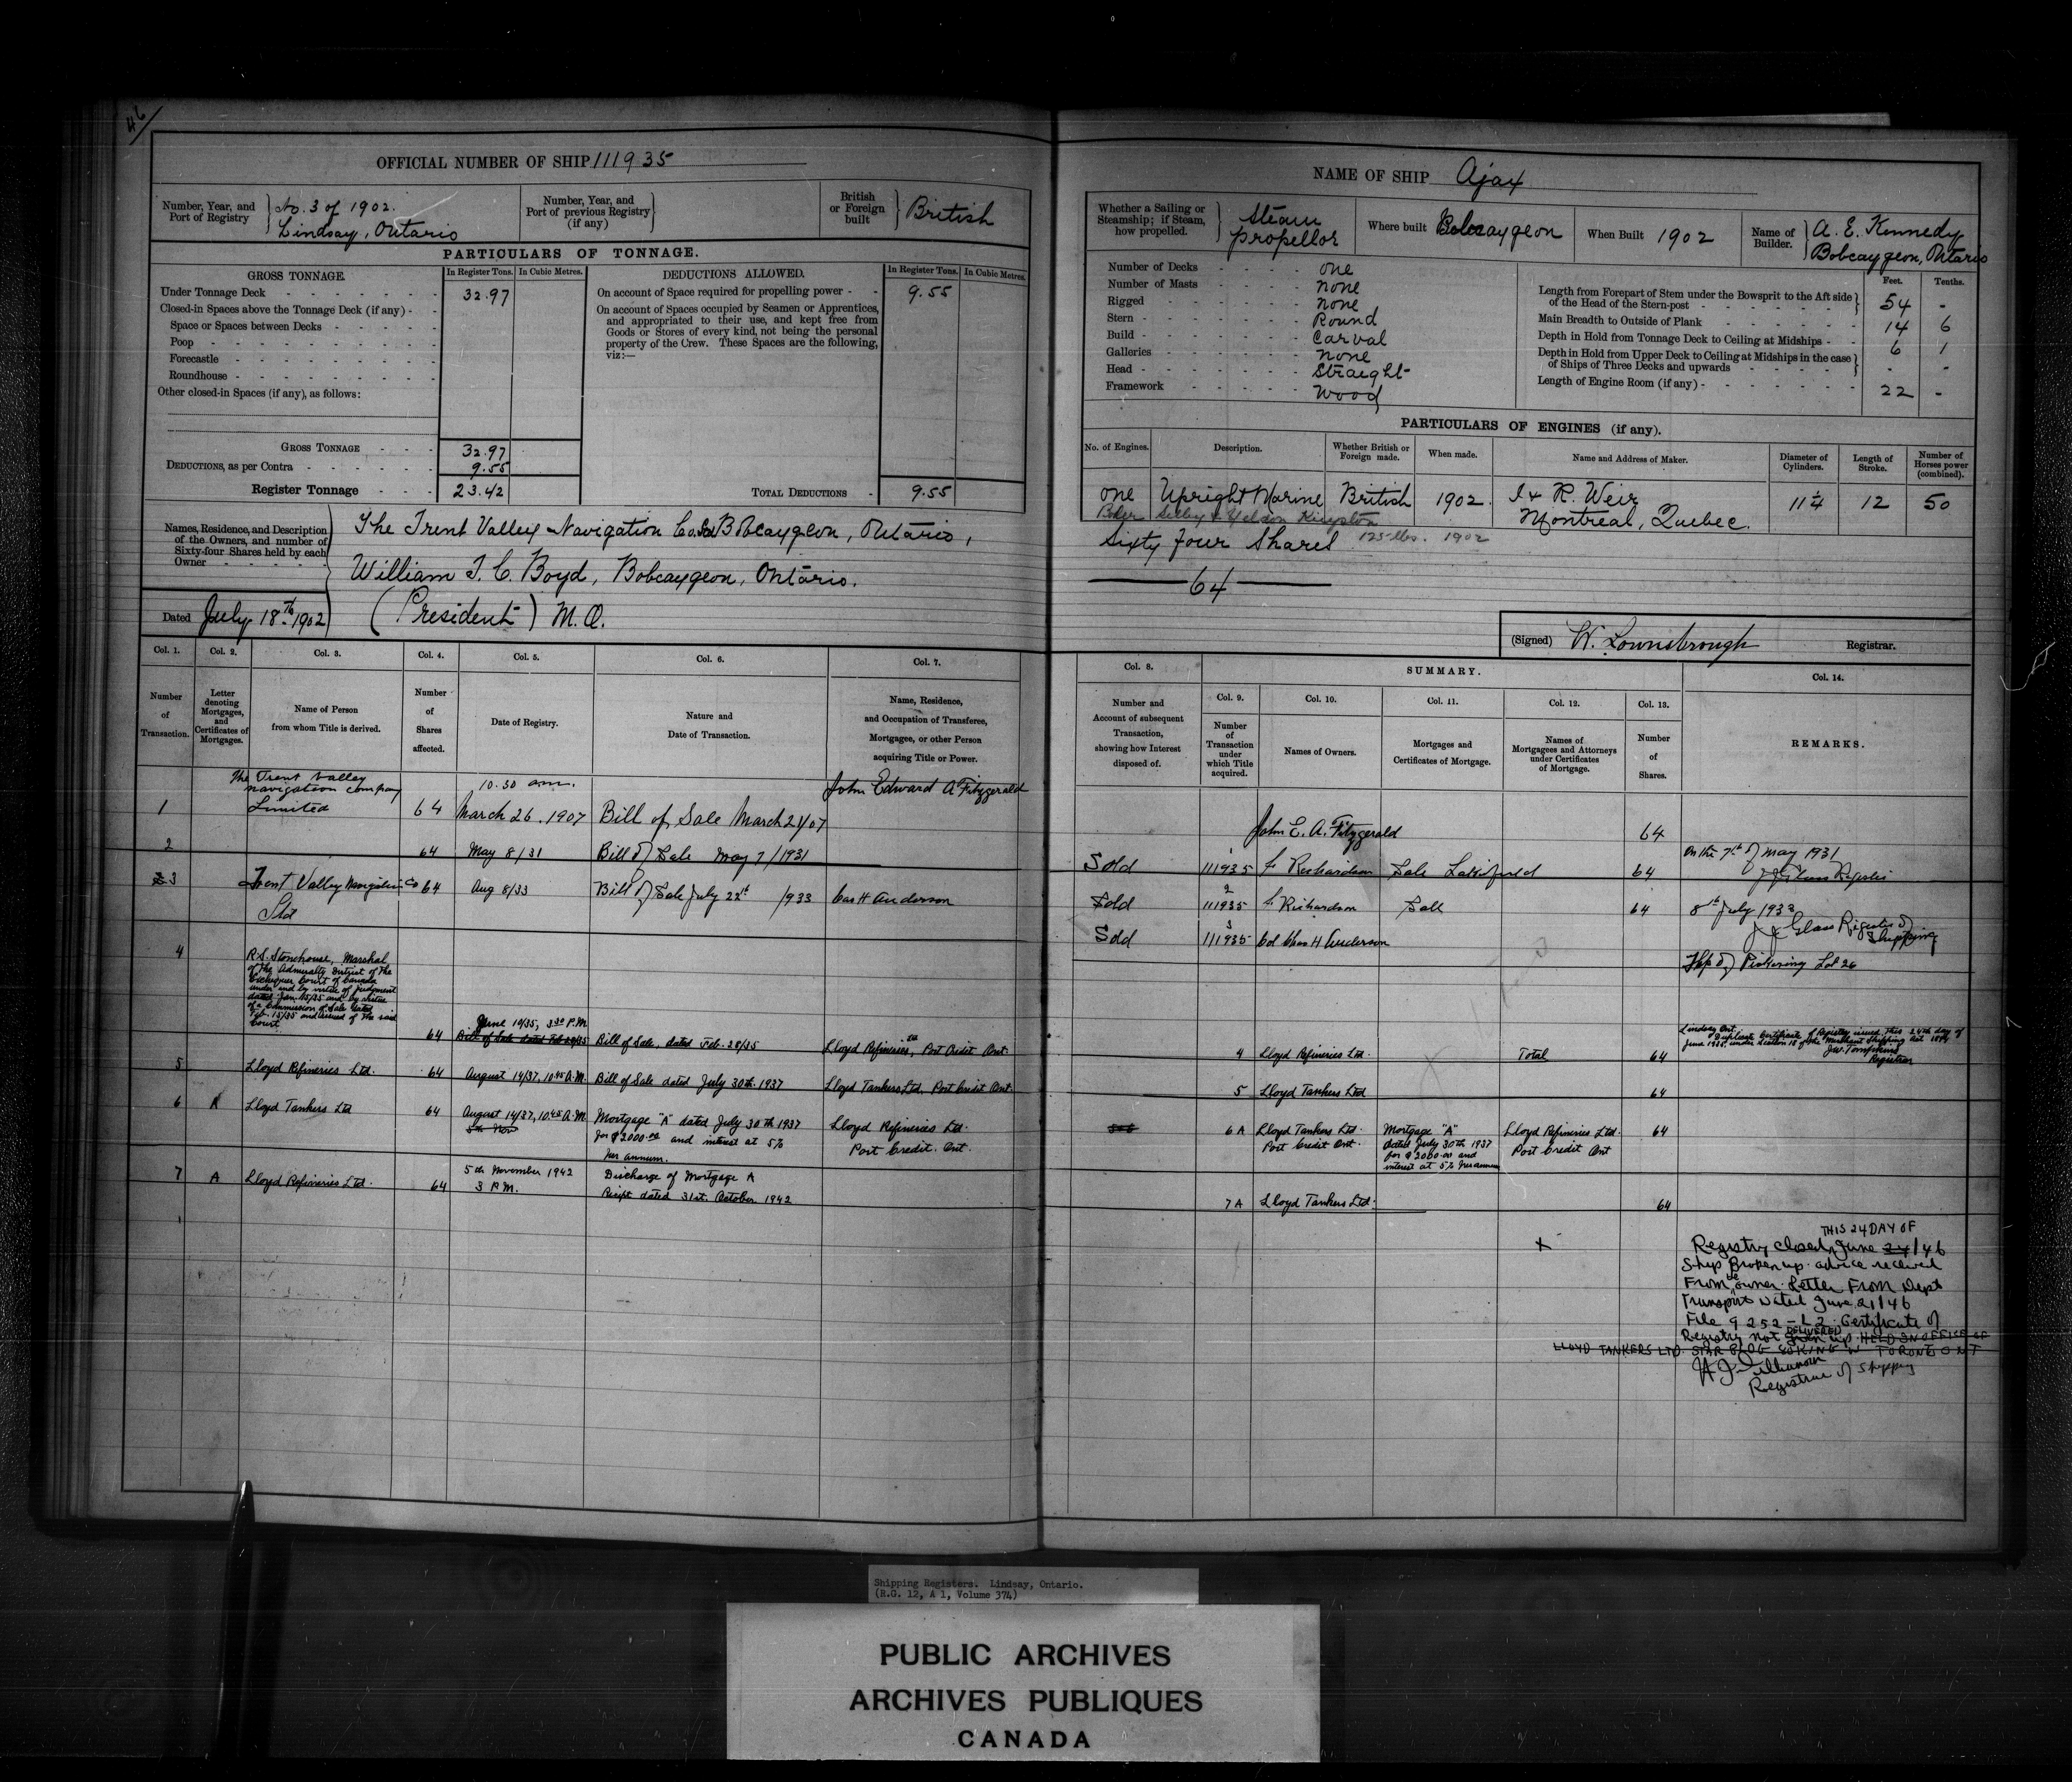 46
OFFICIAL NUMBER OF SHIP 111935
Number, Year, and Port of Registry
No. 3 of 1902.
Lindsay, Ontario
Number, Year, and Port of previous Registry (if any)
British or Foreign built
British
PARTICULARS OF TONNAGE.
GROSS TONNAGE.
In Register Tons. In Cubic Metres.
DEDUCTIONS ALLOWED.
In Register Tons. In Cubic Metres.
Under Tonnage Deck 32.97
Closed-in Spaces above the Tonnage Deck (if any)
Space or Spaces between Decks
Poop
Forecastle
Roundhouse
Other closed-in Spaces (if any), as follows:
On account of Space required for propelling power 9.55
On account of Spaces occupied by Seamen or Apprentices,
and appropriated to their use, and kept free from
Goods or Stores of every kind, not being the personal
property of the Crew. These Spaces are the following,
viz:—
GROSS TONNAGE 32.97
DEDUCTIONS, as per Contra 9.55
Register Tonnage 23.42
TOTAL DEDUCTIONS 9.55
Names, Residence, and Description
of the Owners, and number of
Sixty-four Shares held by each
Owner
The Trent Valley Navigation Co. Ltd Bobcaygeon, Ontario,
William T. C. Boyd, Bobcaygeon, Ontario.
(President) M.O.
Dated July 18th 1902
NAME OF SHIP Ajax
Whether a Sailing or Steamship; if Steam, how propelled.
Steam propellor
Where built Bobcaygeon
When Built 1902
Name of Builder.
A. E. Kennedy
Bobcaygeon, Ontario
Number of Decks one
Number of Masts none
Rigged none
Stern Round
Build Carval
Galleries none
Head Straight
Framework Wood
Feet. Tenths.
Length from Forepart of Stem under the Bowsprit to the Aft side
of the Head of the Stern-post 54 -
Main Breadth to Outside of Plank 14 6
Depth in Hold from Tonnage Deck to Ceiling at Midships 6 1
Depth in Hold from Upper Deck to Ceiling at Midships in the case
of Ships of Three Decks and upwards - -
Length of Engine Room (if any) 22 -
PARTICULARS OF ENGINES (if any).
No. of Engines. Description. Whether British or Foreign made. When made. Name and Address of Maker. Diameter of Cylinders. Length of Stroke. Number of Horses power (combined).
one Upright Marine British 1902. J & R. Weir Montreal, Quebec. 11¼ 12 50
Boiler Selby & Yeldon Kingston
125 lbs. 1902
Sixty four Shares
64
(Signed) W. Lownsbrough Registrar.
Col. 1. Col. 2. Col. 3. Col. 4. Col. 5. Col. 6. Col. 7.
Number of Transaction.
Letter denoting Mortgages, and Certificates of Mortgages.
Name of Person from whom Title is derived.
Number of Shares affected.
Date of Registry.
Nature and Date of Transaction.
Name, Residence, and Occupation of Transferee, Mortgagee, or other Person acquiring Title or Power.
1 The Trent Valley navigation company Limited 64 10.30 am. March 26. 1907 Bill of Sale March 21/07 John Edward A Fitzgerald
2 64 May 8/31 Bill of Sale May 7/1931
3 Trent Valley Navigation Co Ltd 64 Aug 8/33 Bill of Sale July 22d 1933 Cas H Anderson
4 R.S. Stonehouse, Marshal
of The Admiralty District of The
Exchequer Court of Canada
under and by virtue of judgment
dated Jan. 15/35 and by virtue
of a Commission of Sale dated
Feb. 15/35 and issued of The said
Court
64 June 10/35, 3.30 P.M. Bill of Sale dated Feb 28/35 Bill of Sale, dated Feb. 28/35 Lloyd Refineries, Ltd Port Credit Ont.
5 Lloyd Refineries Ltd. 64 August 14/37, 10.45 A.M. Bill of Sale dated July 30th. 1937 Lloyd Tankers Ltd. Port Credit Ont.
6 A Lloyd Tankers Ltd 64 August 14/37, 10.45 A.M. 5th Nov Mortgage "A" dated July 30th 1937
for $2000.00 and interest at 5%
per annum.
Lloyd Refineries Ltd. Port Credit. Ont.
7 A Lloyd Refineries Ltd. 64 5th November 1942 3 P.M. Discharge of Mortgage A
Receipt dated 31st. October 1942
Col. 8. SUMMARY. Col. 14.
Number and Account of subsequent Transaction, showing how Interest disposed of.
Col. 9. Col. 10. Col. 11. Col. 12. Col. 13.
Number of Transaction under which Title acquired.
Names of Owners.
Mortgages and Certificates of Mortgage.
Names of Mortgagees and Attorneys under Certificates of Mortgage.
Number of Shares.
REMARKS.
John E. A. Fitzgerald 64
Sold 1 111935 Richardson Sale Lakefield 64 On the 7th of May 1931
Sold 2 111935 Richardson Sale 64 8th July 1933
J J Glass Register of Shipping
Sold 3 111935 Col Chas H Anderson
Twp of Pickering Lot 26
4 Lloyd Refineries Ltd. Total 64
Lindsay Ont.
Duplicate Certificate of Registry issued this 24th day of
June 1935, under Section 18 of the Merchant Shipping Act 1894
Registrar
5 Lloyd Tankers Ltd 64
6 A Lloyd Tankers Ltd. Port Credit Ont. Mortgage "A"
dated July 30th 1937
for $2000.00 and
interest at 5% per annum
Lloyd Refineries Ltd. Port Credit Ont 64
7 A Lloyd Tankers Ltd. 64
x
THIS 24 DAY OF
Registry closed June 24/46
Ship Broken up. advice received
From the owner. Letter From Dept
Transport Dated June 21/46
File 9252-L2. Certificate of
Registry not given DELIVERED up. HELD IN OFFICE OF
LLOYD TANKERS LTD. STAR BLDG 80 KING W TORONTO ONT
Registrar of Shipping
Shipping Registers. Lindsay, Ontario.
(R.G. 12, A 1, Volume 374)
PUBLIC ARCHIVES
ARCHIVES PUBLIQUES
CANADA